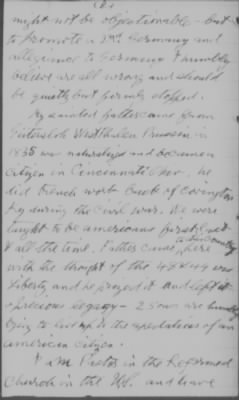 (2.)
might not be objectionable - but
to promote a 2nd Germany and
allegiance to Germany I humbly
believe are all wrong and should
be quietly but firmly stopped.
My sainted father came from
Gutersloh Westphalen Prussia in
1855 was naturalized and became
citizen in Cincinnati Ohio. he
did trench work back of Covington
Ky during the Civil war. We were
taught to be americans first last
& all the time. Father came to this country here
with the thought of the 48 & 49
liberty and he prized it and left it
a precious legacy - 2 sons are humbly
trying to live up to the expectations of an
american citizen.
I am Pastor in the Reformed
Church in the U.S. and have